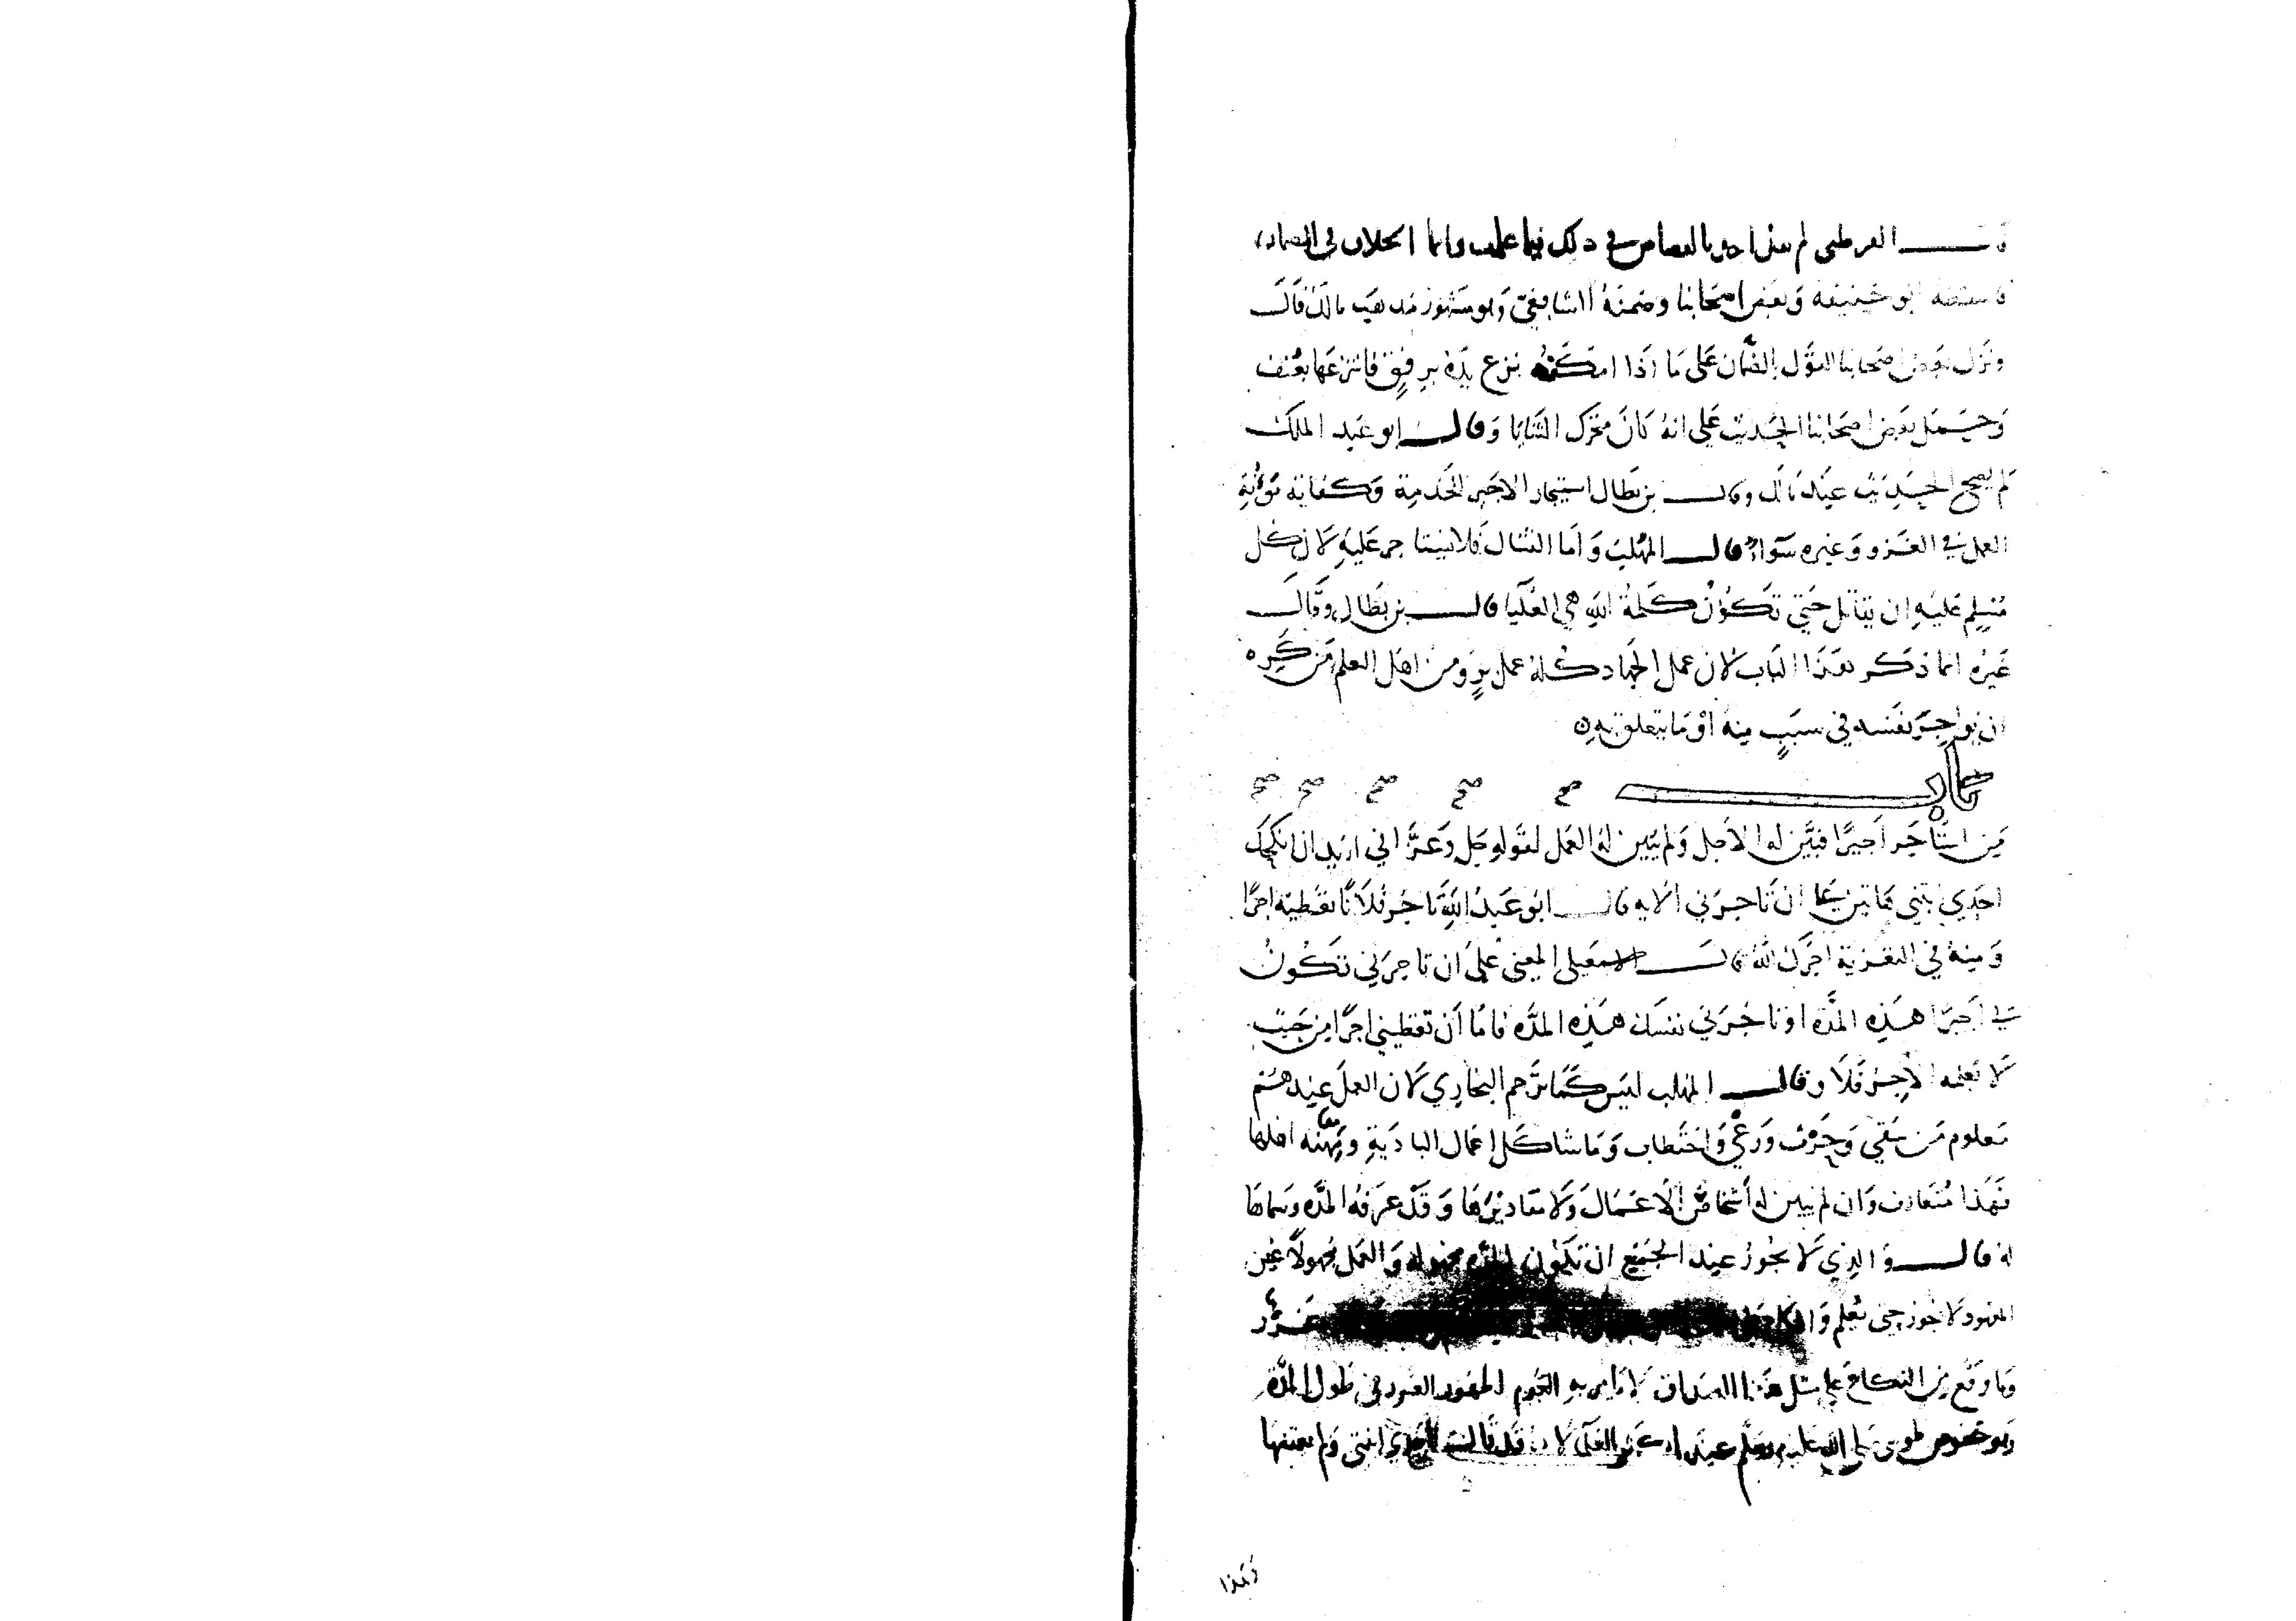 قال القرطبي لم يقل احد بالقصاص في ذلك فيما علمت وانما الخلاف في الضمان
فاسقطه ابو حنيفة وبعض اصحابنا وضمنه الشافعي وهو مشهور مذهب مالك قال
ونزل بعض اصحابنا القول بالضمان على ما اذا امكنه نزع يده برفق فانتزعها بعنف
وحمل بعض اصحابنا الحديث على انه كان متحرك الثنايا وقال ابو عبد الملك
لم يصح الحديث عند مالك وقال بن بطال استيجار الاجير للخدمة وكفاية مؤنة
العمل في الغزو وغيره سواء قال المهلب واما القتال فلا يستاجر عليه لان كل
مسلم عليه ان يقاتل حتى تكون كلمة الله هي العليا قال بن بطال وقال
غيره انما ذكر هذا الباب لان عمل الجهاد كله عمل بر ومن اهل العلم من كره
ان يواجر نفسه في سبب منه او ما يتعلق به
باب صح صح صح صح صح
من استاجر اجيرا فبين له الاجل ولم يبين له العمل لقوله جل وعز اني اريد ان انكحك
احدي ابنتي هاتين على ان تاجرني الايه قال ابو عبد الله تاجر فلانا تعطيه اجرا
ومنه في التعزية اجرك الله قال الاسمعيلي المعنى على ان تاجرني تكون
لي اجيرا هذه المدة او تاجرني نفسك هذه المده فاما ان تعطيني اجرا من حيث
لا تعلمه الاجر فلا وقال المهلب ليس كما ترجم البخاري لان العمل عندهم
معلوم من سقي وحرث ورعي واحتطاب وما شاكل اعمال البادية ومهنه اهلها
فهذا متعارف وان لم يبين له اشخاص الاعمال ولا مقاديرها وقد عرفه المده وسماها
له قال والذي لا يجوز عند الجميع ان تكون المده مجهوله والعمل مجهولا غير
المعهود لا يجوز حتى تعلم والنكاح غرر
وما وقع من النكاح على مثل هذا الصداق لا يامر به اليوم لظهور الغرر في طول المدة
وهو خصوص لموسى صلى الله عليه وسلم عند اكثر العلماء لانه قد قال احدي ابنتي ولم يعينها
وهذا